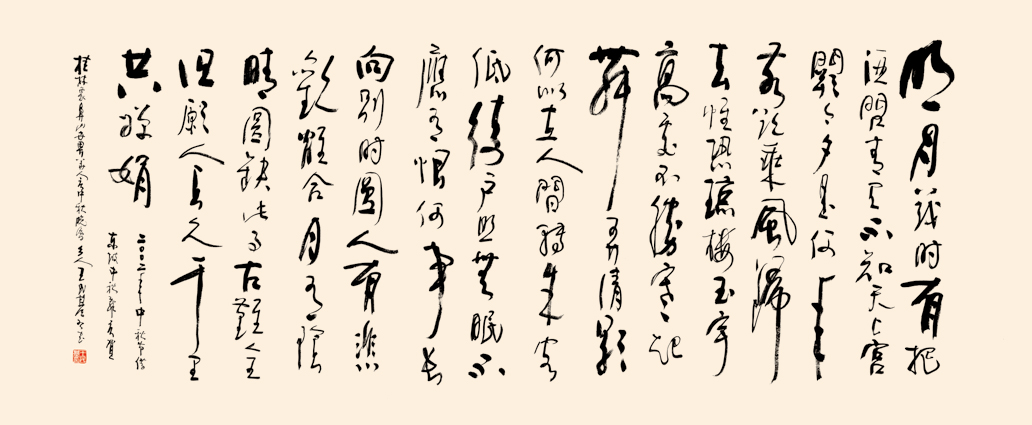 明月幾時有把
酒問青天不知天上宮
闕今夕是何年
我欲乘風歸
去惟恐瓊樓玉宇
高處不勝寒起
舞弄清影
何似在人間轉朱閣
低綺戶照無眠不
應有恨何事長
向別時圓人有悲
歡離合月有陰
晴圓缺此事古難全
但願人長久千里
共嬋娟
二〇〇二年中秋節
東坡中秋